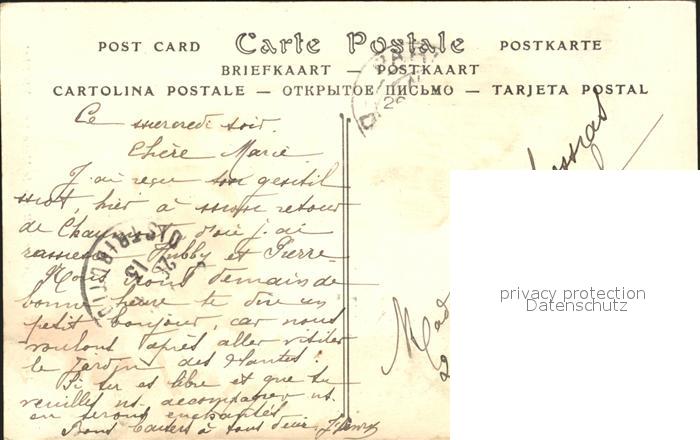 POST CARD Carte Postale POSTKARTE
BRIEFKAART — POSTKAART
CARTOLINA POSTALE — ОТКРЫТОЕ ПИСЬМО — TARJETA POSTAL
Ce mercredi soir.
Chère Marie
J'ai reçu ton gentil
mot, hier à mon retour
de d'où j'ai
ramené Hubby et Pierre.
Nous irons demain de
bonne heure te dire un
petit bonjour, car nous
voulons après aller visiter
le Jardin des Plantes!
Si tu es libre et que tu
veuilles ns. accompagner ns.
en serons enchantés
Bons baisers à tous deux
DISTRIBUTION
15
26
privacy protection
Datenschutz